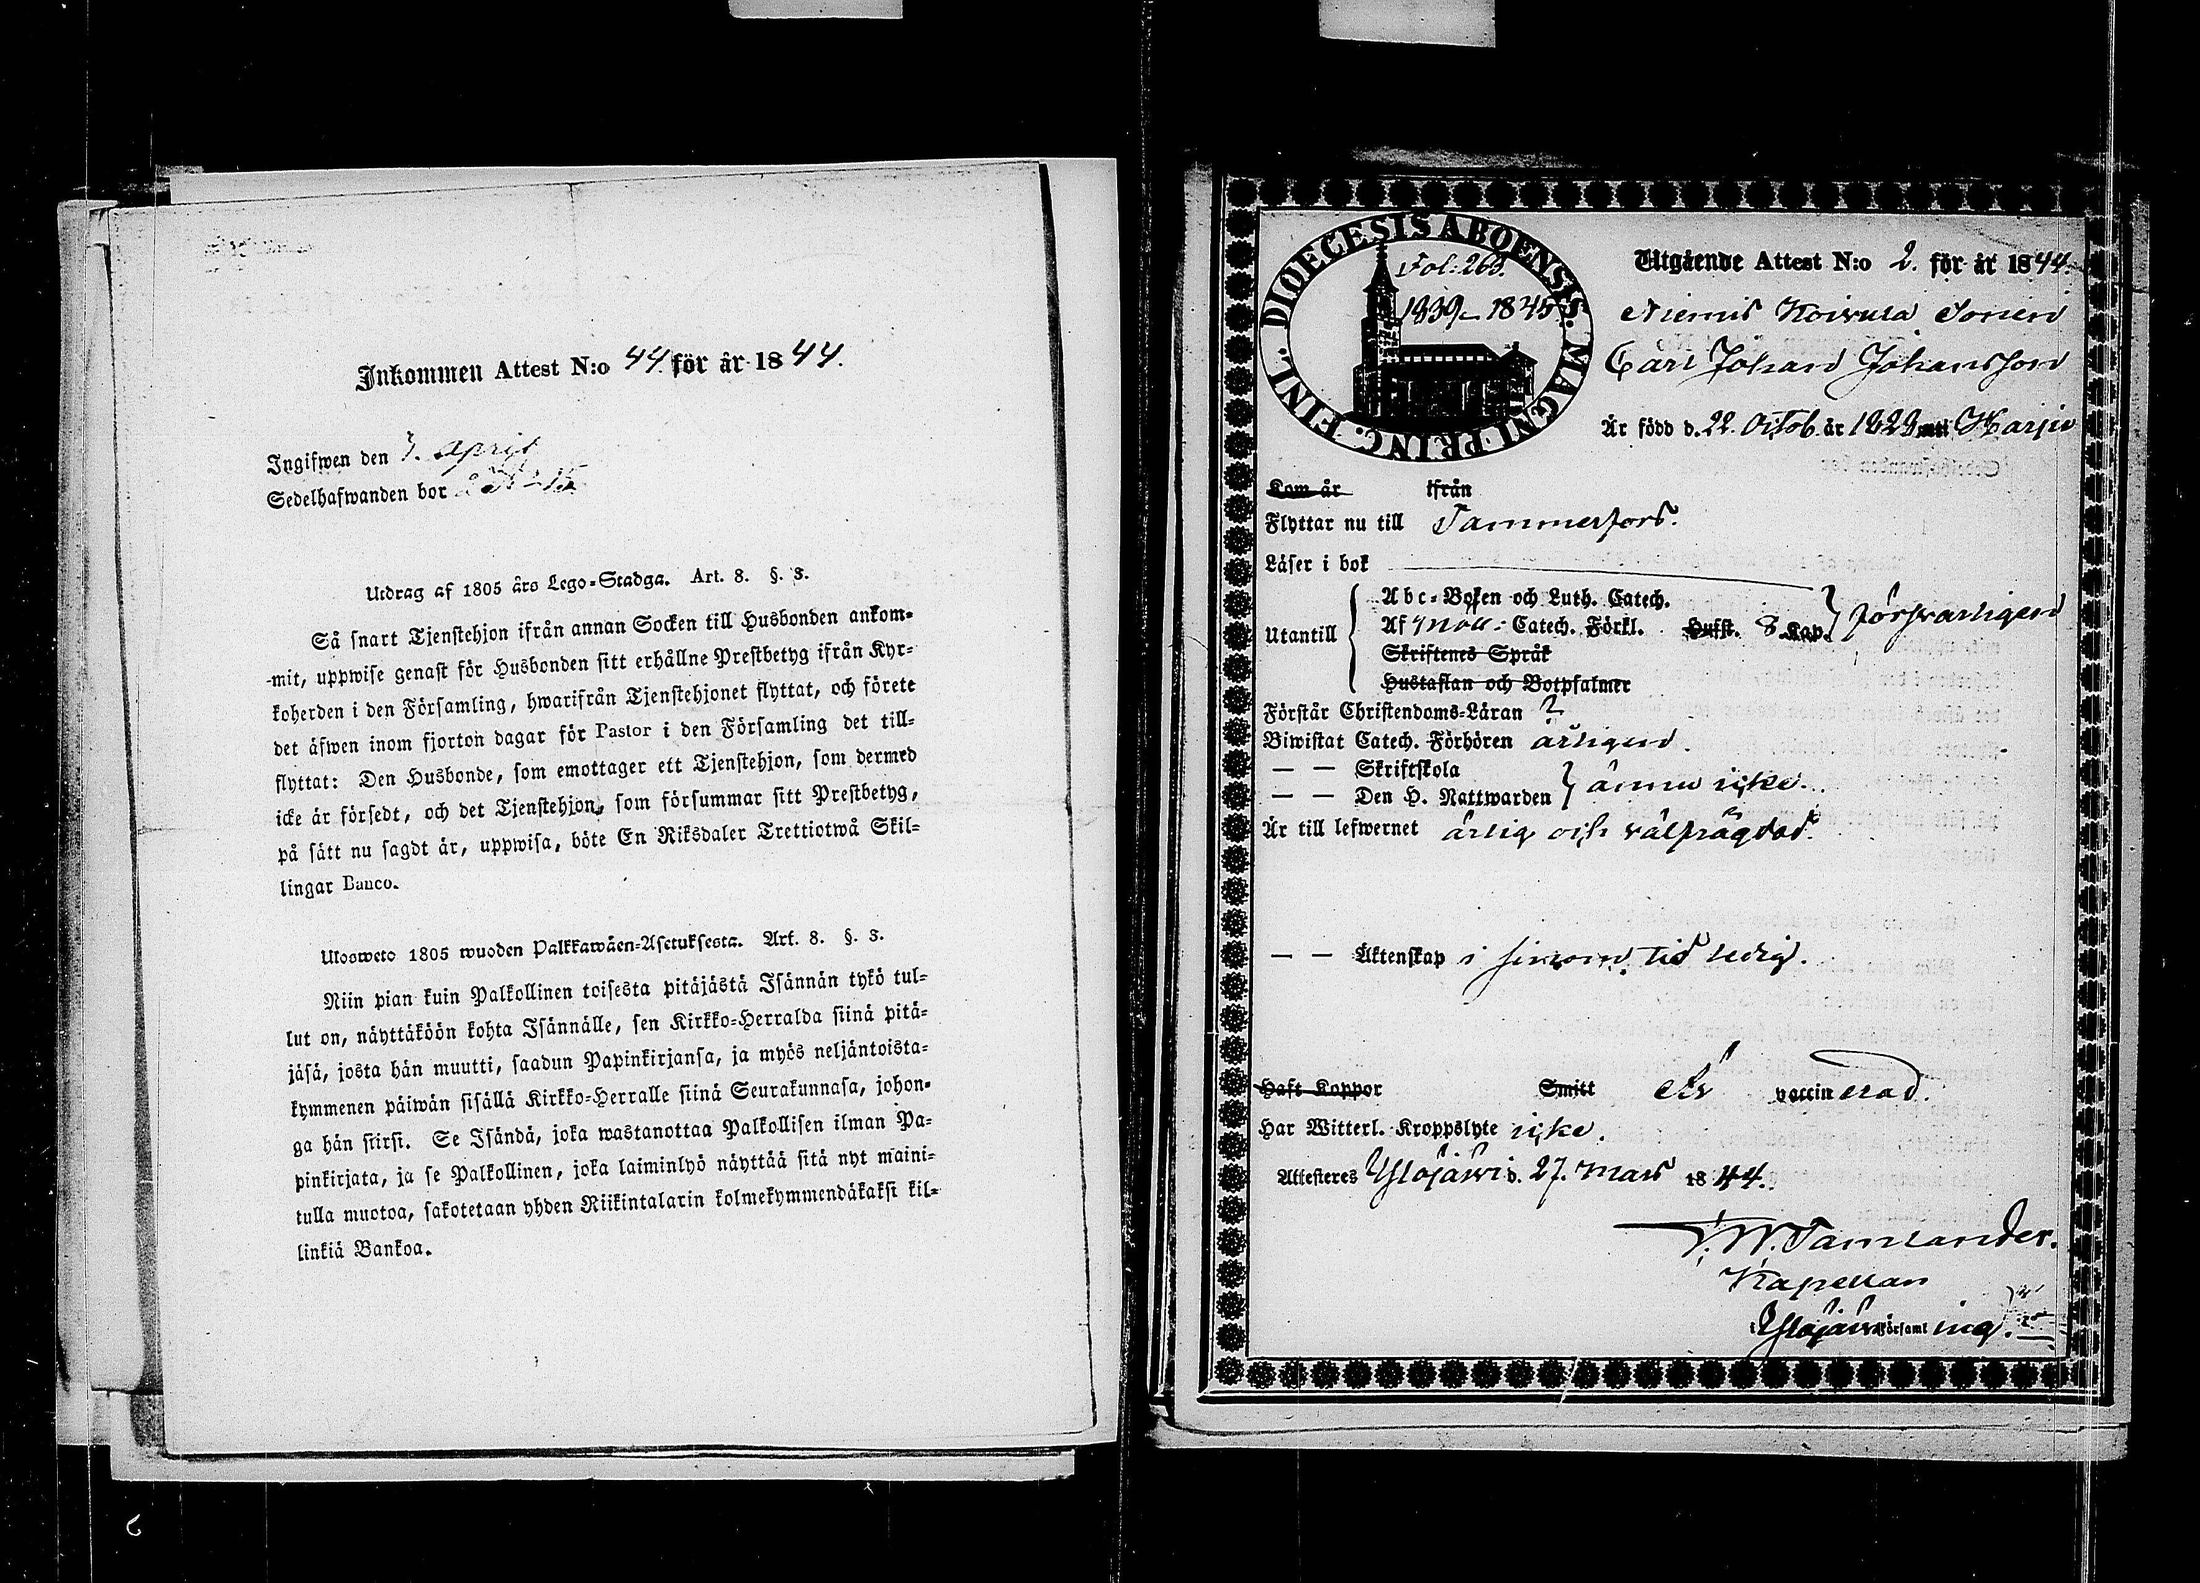 Inkommen Attest N:o 44. för år 1844.
Ingifwen den 3. April
Sedelhafwanden bor
Utdrag af 1805 års Lego-Stadga. Art. 8. §. 3.
Så snart Tjenstehjon ifrån annan Socken till Husbonden ankom-
mit, uppwise genast för Husbonden sitt erhållne Prestbetyg ifrån Kyr-
koherden i den Församling, hwarifrån Tjenstehjonet flyttat, och förete
det äfwen inom fjorton dagar för Pastor i den Församling det till-
flyttat: Den Husbonde, som emottager ett Tjenstehjon, som dermed
icke är försedt, och det Tjenstehjon, som försummar sitt Prestbetyg,
på sätt nu sagdt är, uppwisa, böte En Riksdaler Trettiotwå Skil-
lingar Banco.
Ulosweto 1805 wuoden Palkkawäen-Asetuksesta. Art. 8. §. 3.
Niin pian kuin Palkollinen toisesta pitäjästä Isännän tykö tul-
lut on, näyttäköön kohta Isännälle, sen Kirkko-Herralda siinä pitä-
jäsä, josta hän muutti, saadun Papinkirjansa, ja myös neljäntoista-
kymmenen päiwän sisällä Kirkko-Herralle siinä Seurakunnasa, johon-
ga hän siirsi. Se Isändä, joka wastanottaa Palkollisen ilman Pa-
pinkirjata, ja se Palkollinen, joka laiminlyö näyttää sitä nyt maini-
tulla muotoa, sakotetaan yhden Riikintalarin kolmekymmendäkaksi kil-
linkiä Bankoa.
DIOECESIS ABOENSIS. MAGNI PRINC. FINL.
Fol: 263.
1839-1845
Utgående Attest N:o 2. för år 1844.
Niemis Koivula Sonen
Carl Johan Johansson
Är född d. 22. Octob. år 1829 uti Harju
Kom år ifrån
Flyttar nu till Tammerfors.
Läser i bok
Utantill
Abc-Boken och Luth. Catech.
Af Möll: Catech. Förkl. Hufst. 8 Kap.
försvarligen
Skriftenes Språk
Hustaflan och Botpsalmer
Förstår Christendoms-Läran
Biwistat Catech. Förhören årligen.
— — Skriftskola
— — Den H. Nattwarden
ännu icke.
Är till lefwernet ärlig och välfrägdad.
— — Äktenskap i sinom tid ledig.
Haft Koppor Smitt Är vaccinerad.
Har Witterl. Kroppslyte icke.
Attesteres Ylöjärvi d. 27. Mars 1844.
Kapellan
i Ylöjärvi Församling.